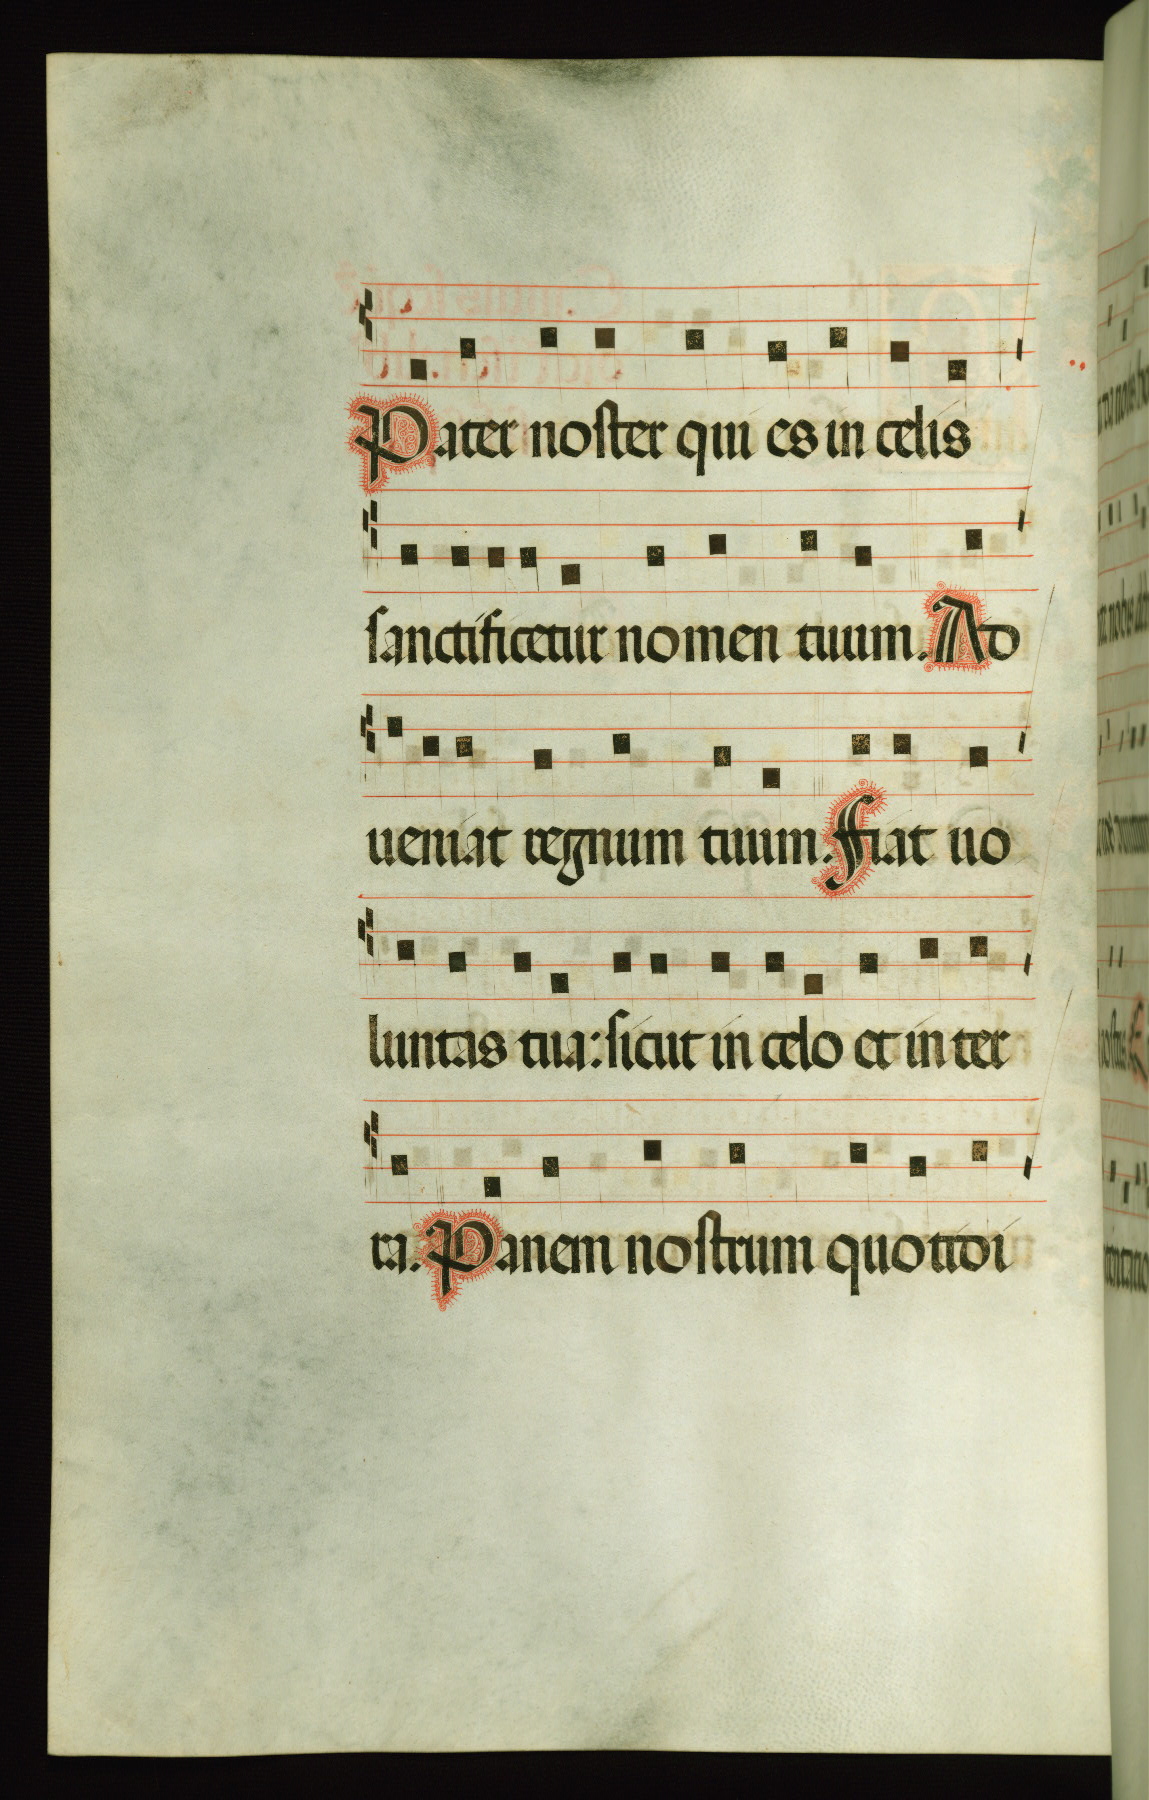 Pater noster qui es in celis
sanctificetur nomen tuum. Ad
ueniat regnum tuum. Fiat uo
luntas tua: sicut in celo et in ter
ra. Panem nostrum quotidi